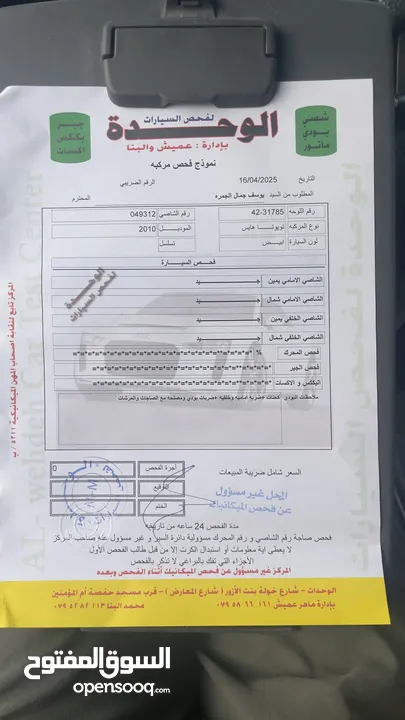 شصي
بودي
ماتور
لفحص السيارات
الوحدة
بإدارة : عميش والبنا
جير
بككس
اكسات
نموذج فحص مركبه
التاريخ 16/04/2025 الرقم الضريبي
المطلوب من السيد يوسف جمال الجمره المحترم
رقم اللوحه 42-31785 رقم الشاصي 049312
نوع المركبه تويوتا هايس الموديل 2010
لون السيارة ابيض تسلسل
فحص السيارة
الشاصي الامامي يمين جيد
الشاصي الامامي شمال جيد
الشاصي الخلفي يمين جيد
الشاصي الخلفي شمال جيد
فحص المحرك %
فحص الجير
البككس و الاكسات
ملاحظات البودي : كتات +ضربه اماميه وخلفيه +ضربات بودي ومصلحه مع الصاجات والفرشات
الوحدة
لفحص السيارات
السعر شامل ضريبة المبيعات
اجرة الفحص 0
التوقيع
الختم
المحل غير مسؤول
عن فحص الميكانيك
مدة الفحص 24 ساعه من تاريخه
فحص صاجة رقم الشاصي و رقم المحرك مسؤولية دائرة السير و غير مسؤول عنه صاحب السركز
لا يعطى اية معلومات أو استبدال الكرت إلا من قبل طالب الفحص الأول
الأجزاء التي تفك بالبراغي لا تذكر بالفحص
المركز غير مسؤول عن فحص الميكانيك أثناء الفحص وبعده
الوحدات - شارع خولة بنت الأزور ( شارع المعارض ) - قرب مسجد حفصة أم المؤمنين
بإدارة ماهر عميش ٠٧٩ ٥٨ ٦٦ ١٦١ محمد البنا ٠٧٩ ٥٢ ٨٢ ١١٣
المركز تابع لنقابة اصحاب المهن الميكانيكية ٥٢١١ / ب
Al - Wehdeh Car Test Center
السوق المفتوح
opensooq.com